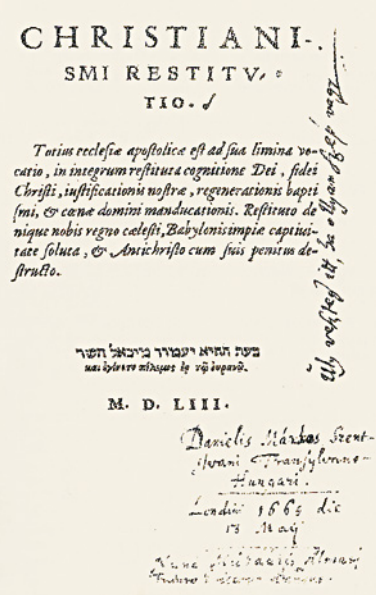 CHRISTIANI-
SMI RESTITV,
TIO.
Totius ecclesiæ apostolicæ est ad sua limina vo-
catio, in integrum restituta cognitione Dei, fidei
Christi, iustificationis nostræ, regenerationis bapti
smi, & cœnæ domini manducationis. Restituto de
nique nobis regno cælesti, Babylonis impiæ captiui-
tate soluta, & Antichristo cum suis penitus de-
structo.
בעת ההיא יעמוד מיכאל השר
καὶ ἐγένετο πόλεμος ἐν τῷ οὐρανῷ.
M. D. LIII.
Danielis Márkos Szent-
Ivani Transylvano-
Hungari.
Londini 1665 die
13 Maij
Nunc Michaelis